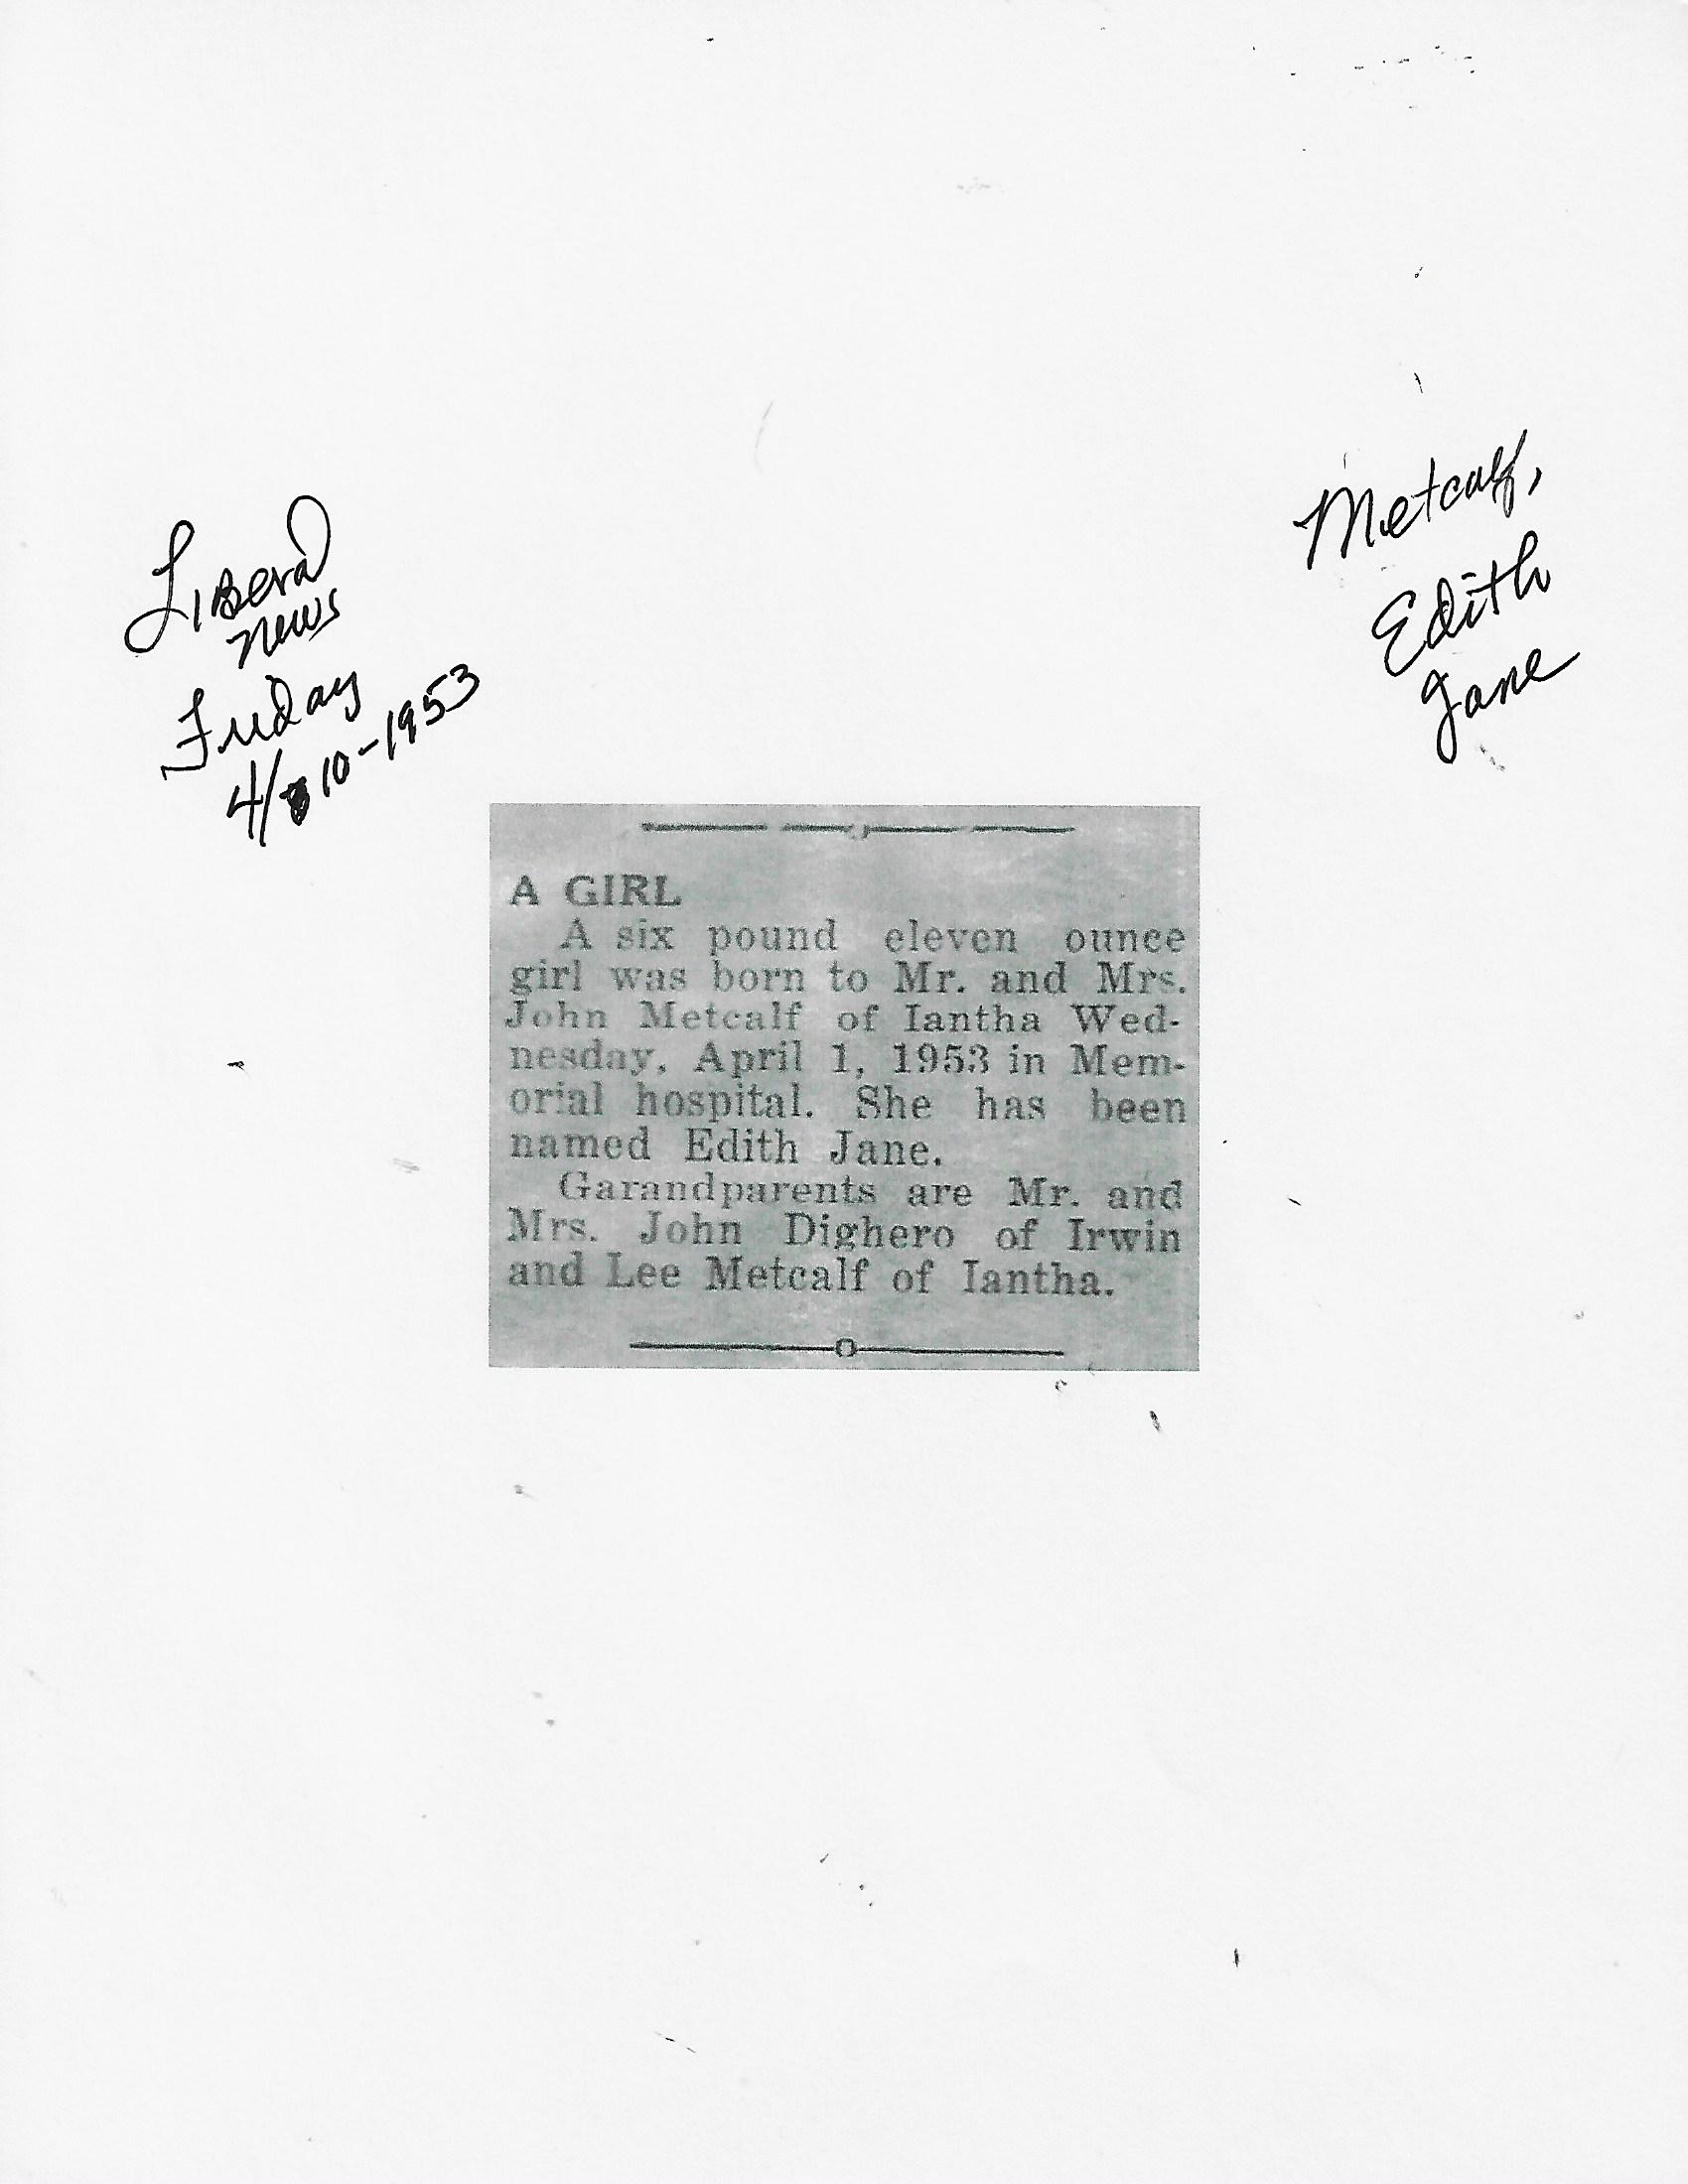 Liberal
News
Friday
4/10-1953
Metcalf,
Edith
Jane
A GIRL
A six pound eleven ounce
girl was born to Mr. and Mrs.
John Metcalf of Iantha Wed-
nesday, April 1, 1953 in Mem-
orial hospital. She has been
named Edith Jane.
Garandparents are Mr. and
Mrs. John Dighero of Irwin
and Lee Metcalf of Iantha.